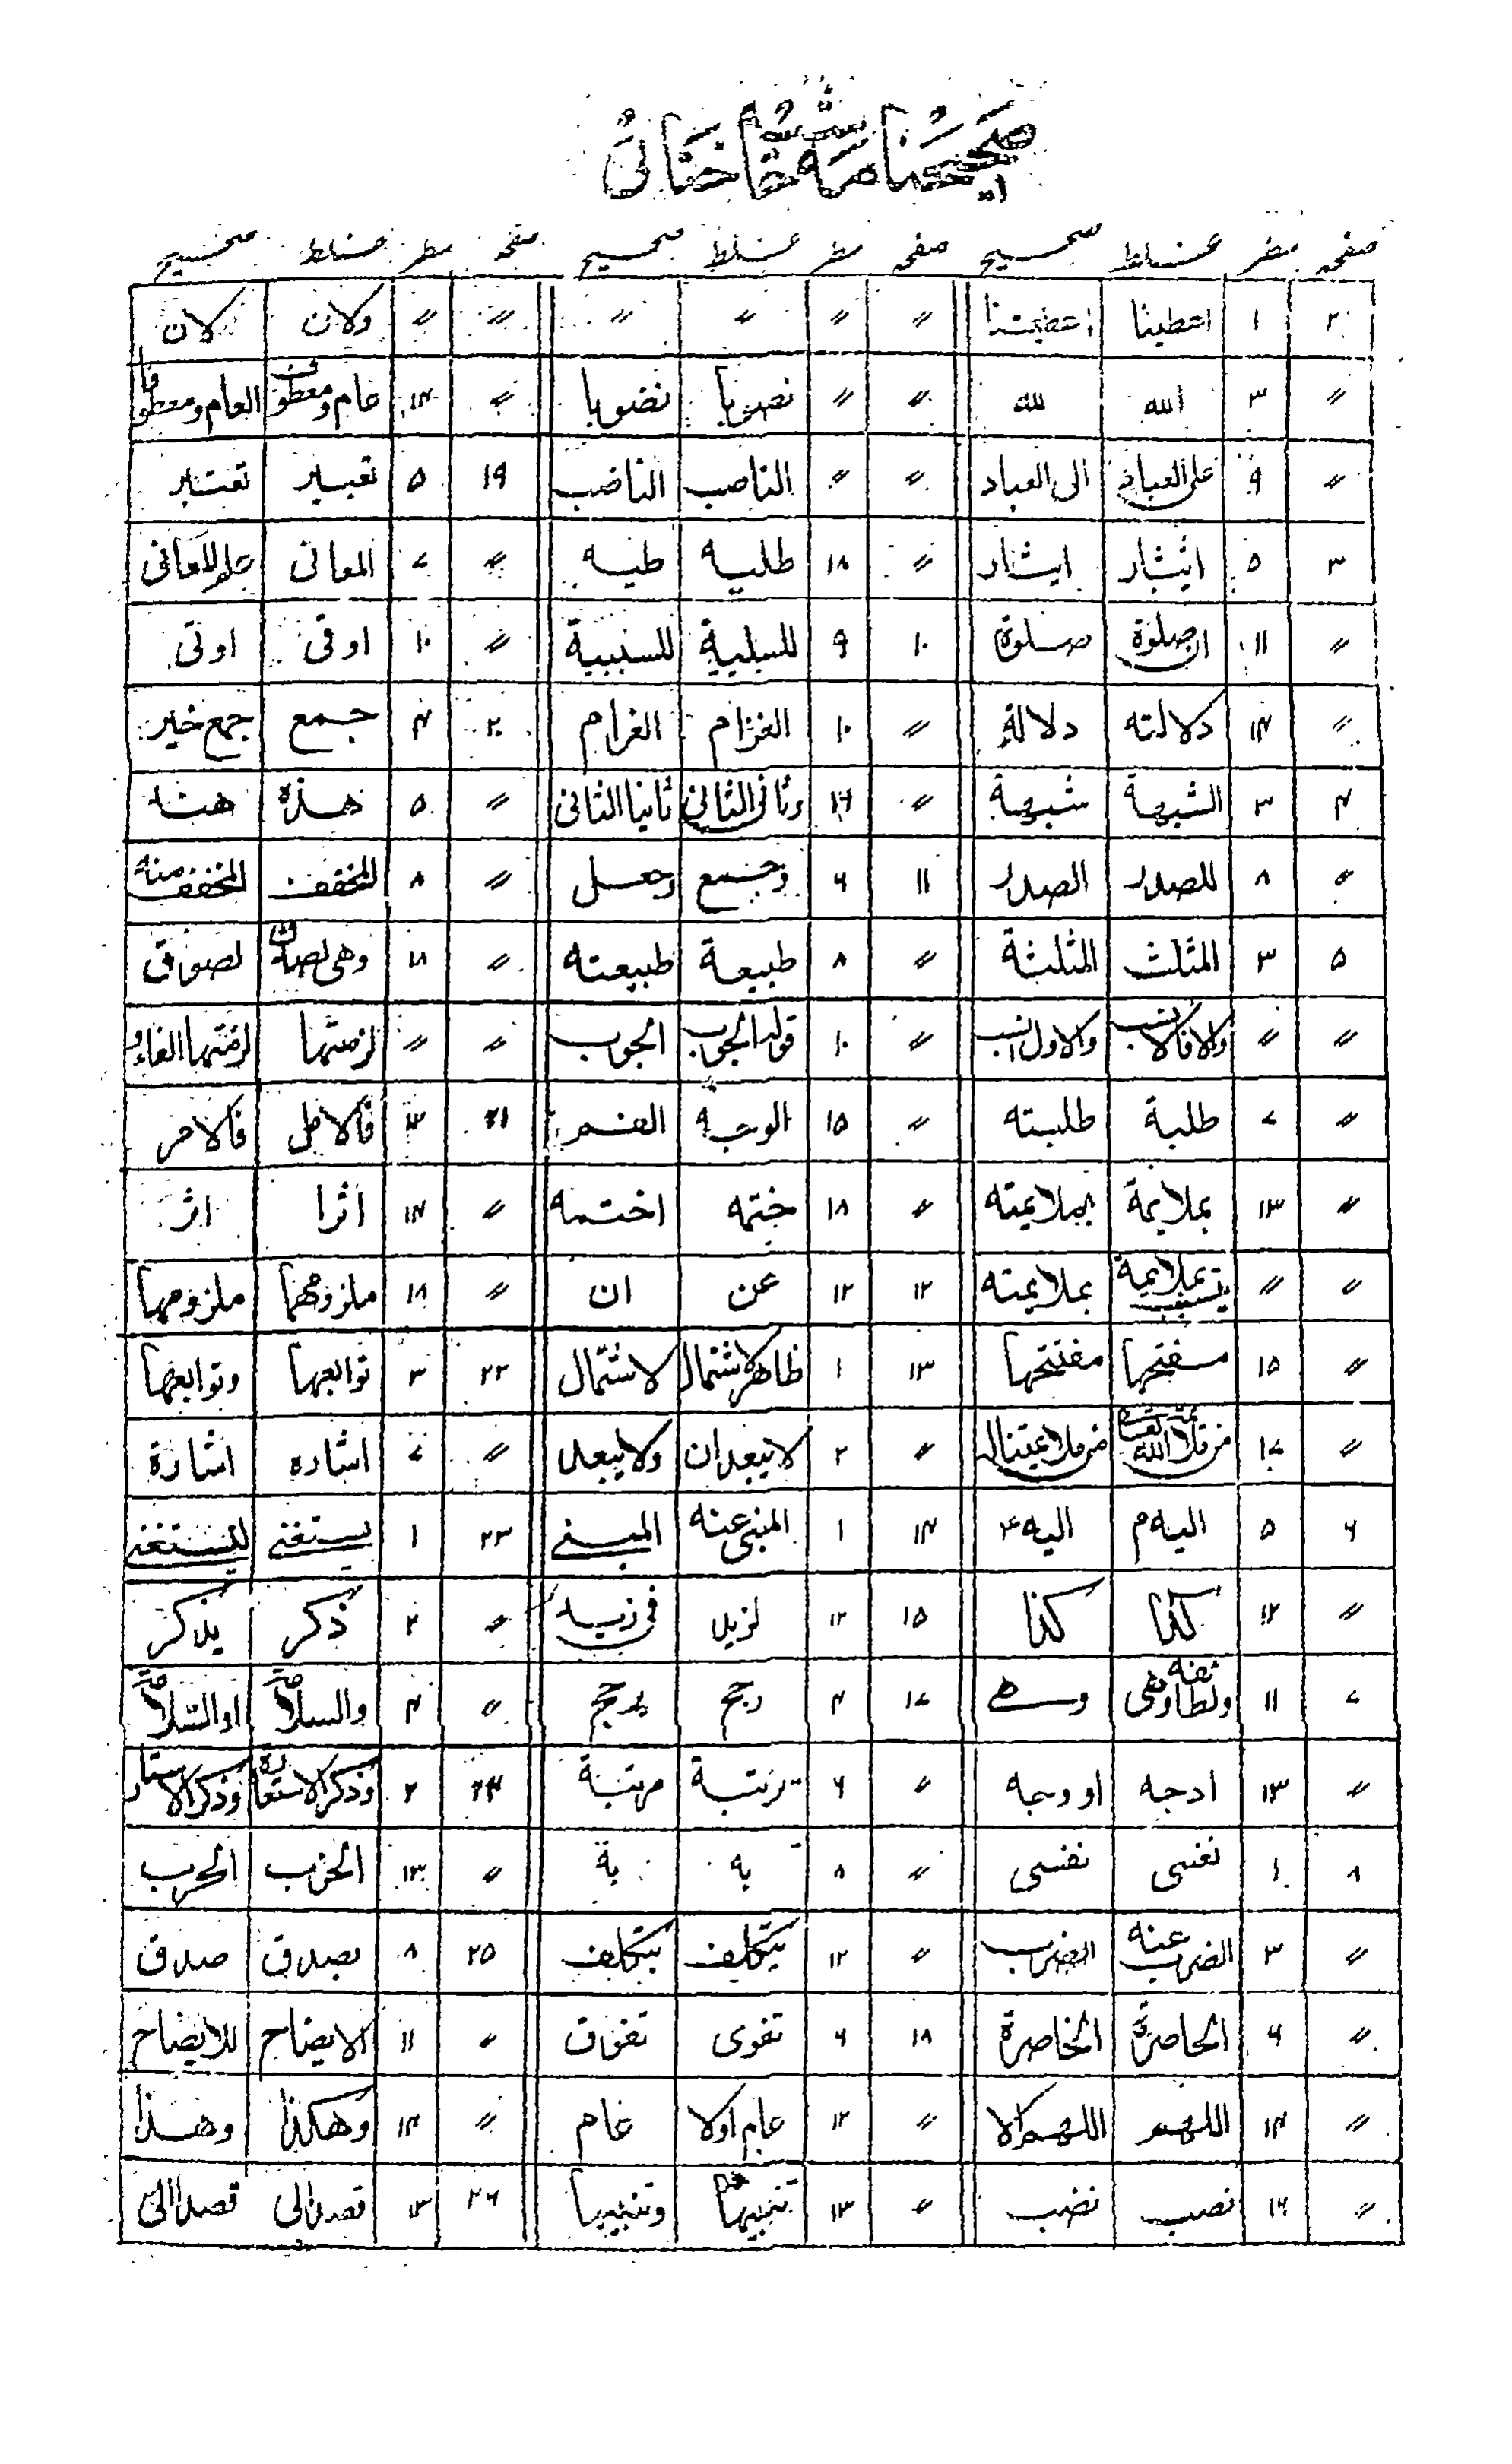 صحیحنامہ شرح خطائی
صفحہ سطر غلط صحیح صفحہ سطر غلط صحیح صفحہ سطر غلط صحیح
۲ ۱ اعطینا اعطیتنا 〃 〃 〃 〃 〃 〃 وکان کان
〃 ۳ الله لله 〃 〃 نصوبا نضوبا 〃 ۱۴ عام ومعطوف العام ومعطوفا
〃 ۹ على العباد الى العباد 〃 〃 الناصب الناضب ۱۹ ۵ تعبیر تعتبر
۳ ۵ ایثار ایثار 〃 ۱۸ طلبه طیه 〃 ۷ المعانى علم المعانى
〃 ۱۱ ان صلوة صلوة ۱۰ ۹ للسلبية للسببية 〃 ۱۰ اوقى اوتى
〃 ۱۴ دلالته دلالة 〃 ۱۰ الغزام الغرام ۲۰ ۴ جمع جمع خیر
۴ ۳ الشبهة شبهة 〃 ۱۶ وثانى الثانى ثانيا الثانى 〃 ۵ هذه هنا
〃 ۸ للصدر الصدر ۱۱ ۶ وجمع وجعل 〃 ۸ المخفف المخفف منه
۵ ۳ المثلث المثلثة 〃 ۸ طبيعة طبيعته 〃 ۱۸ لصوقى
〃 〃 والاول انسب 〃 ۱۰ قوله الجوب الجوب 〃 〃 لزمتها لزمتها الفاء
〃 ۷ طلبة طلبته 〃 ۱۵ الوجه القسم ۲۱ ۳ فالاصل فالامر
〃 ۱۳ بملايمة بملايمته 〃 ۱۸ ختمه اختمه 〃 ۱۴ اثرا اثر
〃 〃 بملايمة بملايمته ۱۲ ۱۲ عن ان 〃 ۱۸ ملزومهما ملزومها
〃 ۱۵ مفتحها مفتتحها ۱۳ ۱ ظاهر لاشتمال لاشتمال ۲۲ ۳ توابعها وتوابعها
〃 ۱۷ 〃 ۲ لا یبعد ان ولا یبعد 〃 ۷ اشاره اشارة
۶ ۵ الیه م الیه ۱۴ ۱ المبنى عنه المبنى ۲۳ ۱ یستغنى لیستغنى
〃 ۱۲ کذا کذا ۱۵ ۱۲ لزید فى زید 〃 ۲ ذکر یذکر
۷ ۱۱ وسط ۱۷ ۴ رجح یرجح 〃 ۴ والسلام او السلام
〃 ۱۳ ادجه او وجه 〃 ۶ ترتبة مرتبة ۲۴ ۲ وذکر الاستعارة
۸ ۱ نغسى نفسى 〃 ۸ به بة 〃 ۱۳ الحزب الحرب
〃 ۳ الضرب عنه الضرب 〃 ۱۲ یتکلف بتکلف ۲۵ ۸ یصدق صدق
〃 ۶ الحاصرة الخاصرة ۱۸ ۶ تفوى تفوق 〃 ۱۱ الایضاح للایضاح
〃 ۱۴ اللهم اللهم الا 〃 ۱۲ عام اولا عام 〃 ۱۴ وهکذا وهذا
〃 ۱۶ نصب نضب 〃 ۱۳ تنبیها وتنبیها ۲۶ ۱۳ قصد الى قصدا الى